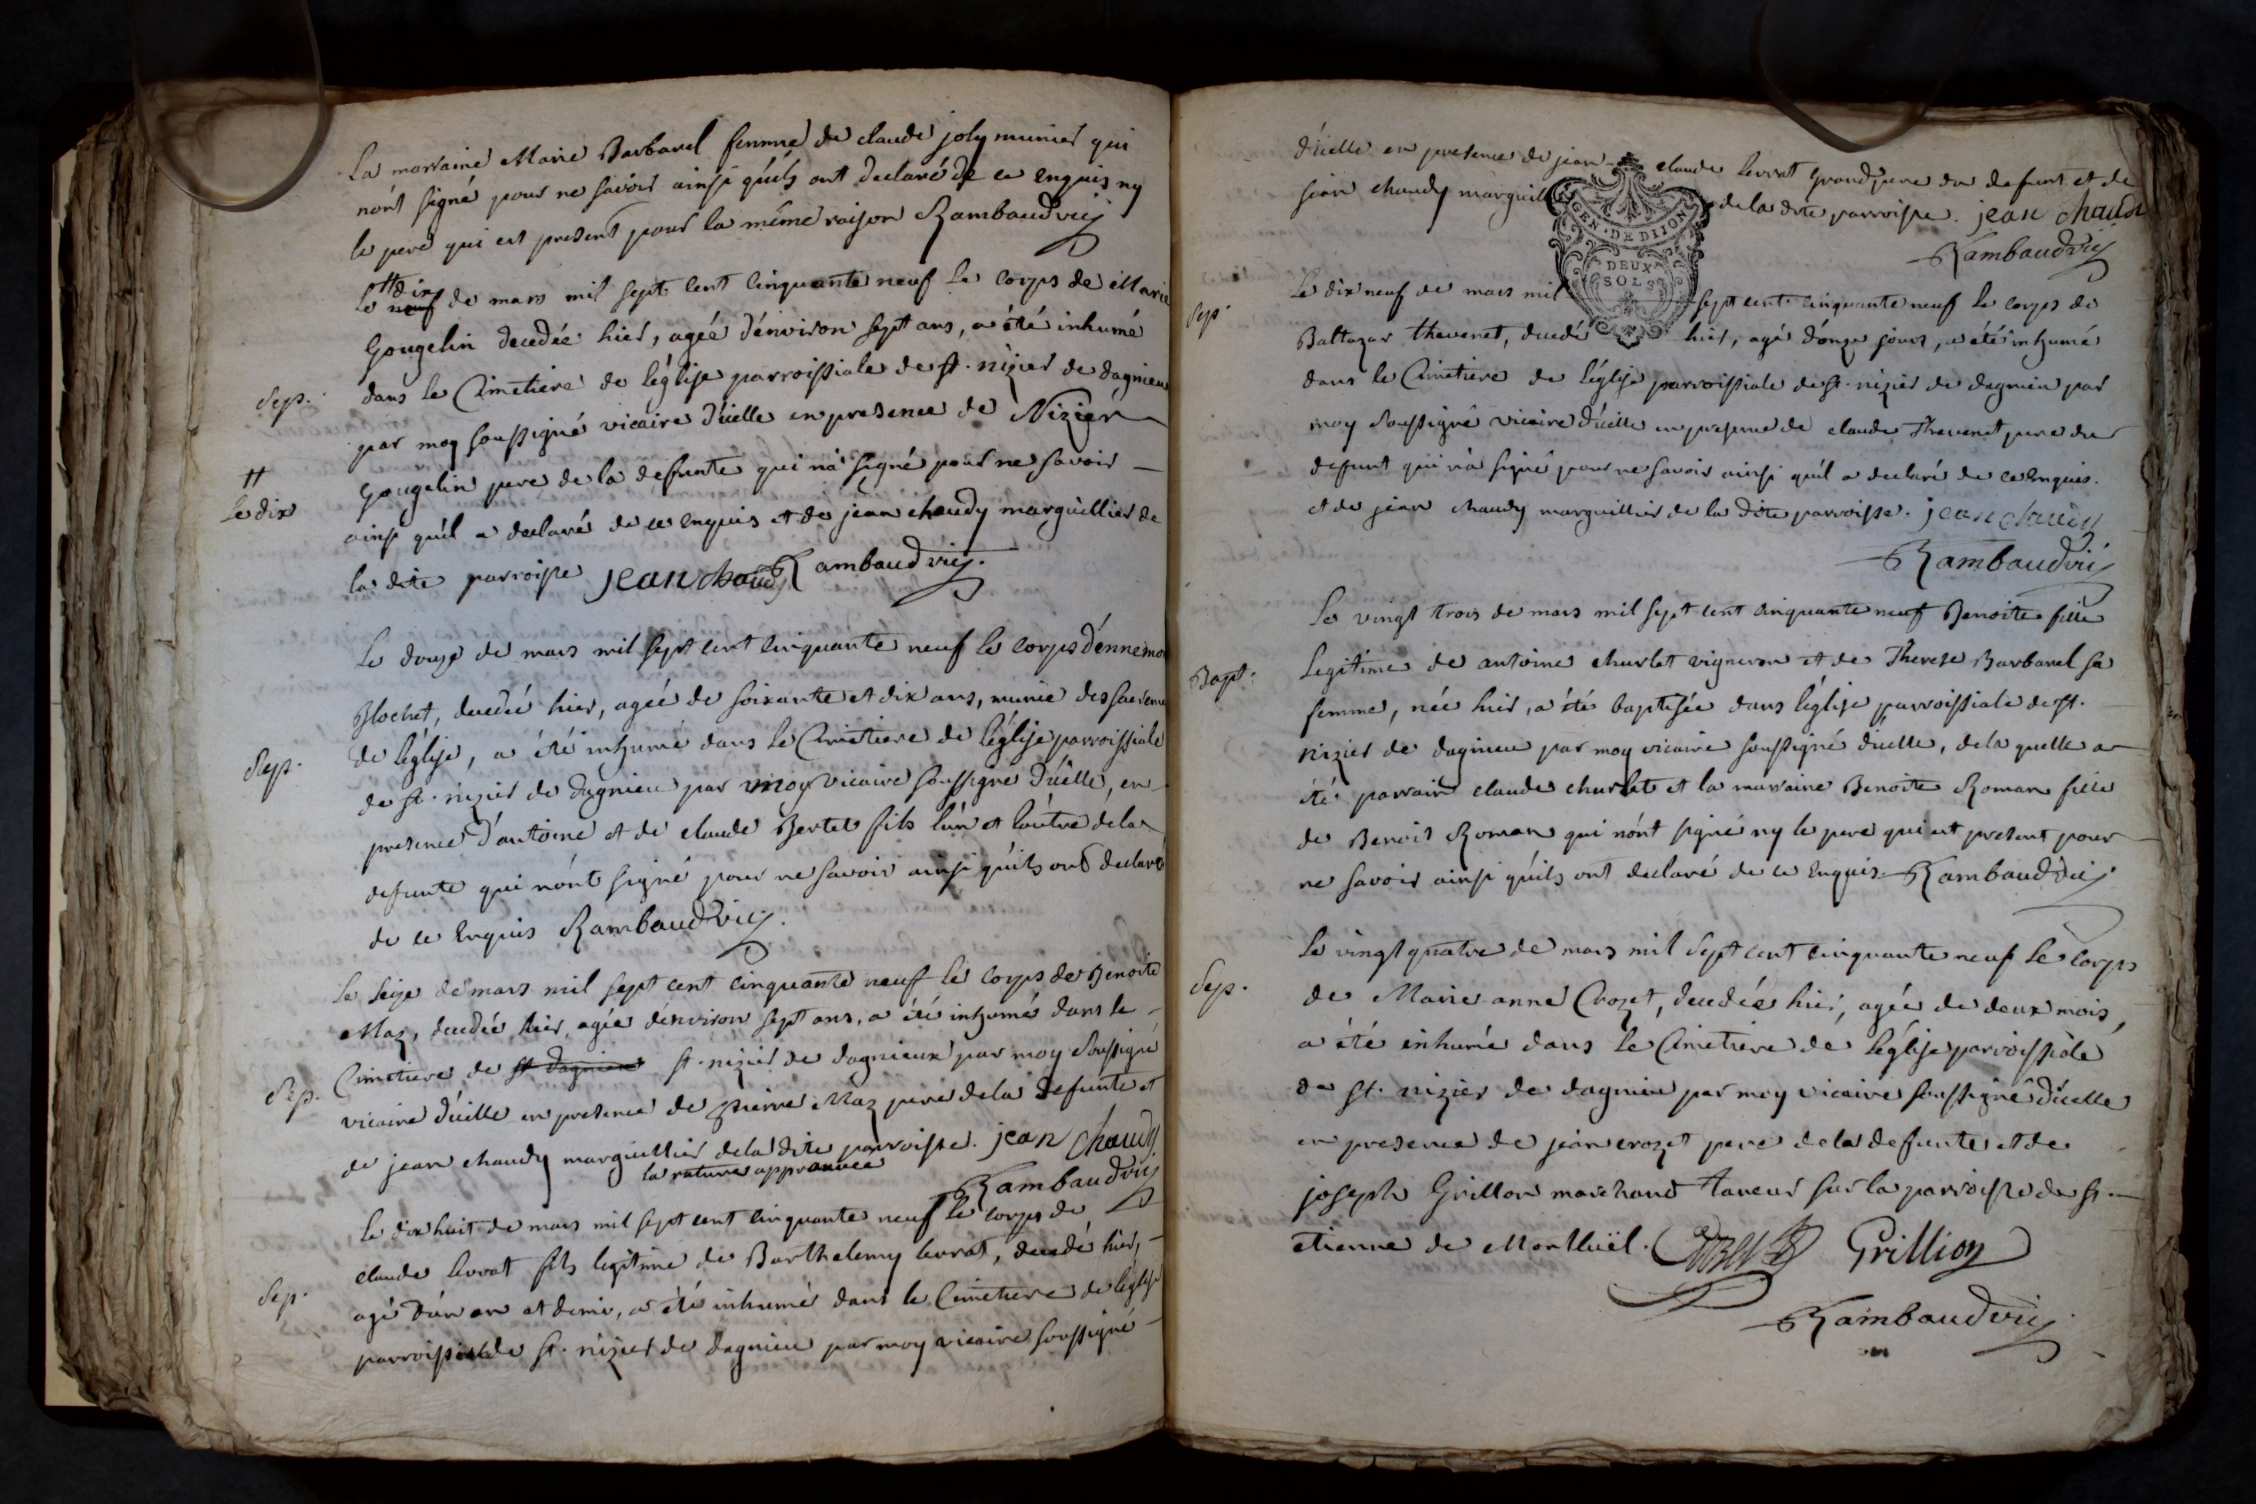 La marraine Marie Barbarel femme de claude joly munier qui
n'ont signé pour ne savoir ainsi qu'ils ont declaré de ce enquis ny
le pere qui est present pour la même raison Rambaud vic
le ++dix neuf de mars mil sept cent cinquante neuf le corps de Marie
Gougelin decedée hier, agée d'environ sept ans, a été inhumé
dans le Cimetiere de l'église parroissiale de st. nizier de dagnieu
Sep.
par moy soussigné vicaire d'icelle en presence de Nizier
Gougelin pere de la defunte qui n'a signé pour ne savoir
++
le dix
ainsi qu'il a declaré de ce enquis et de jean chaudy marguillier de
la dite parroisse jean chaudy Rambaud vic.
Le douze de mars mil sept cent cinquante neuf le corps d'ennemo
Blochet, decedée hier, agée de soixante et dix ans, munie des sacremen
de l'église, a été inhumé dans le Cimetiere de l'église parroissiale
Sep.
de st. nizier de dagnieu par moy vicaire soussigné d'icelle, en
presence d'antoine et de claude Bertet fils l'un et l'autre de la
defunte qui n'ont signé pour ne savoir ainsi qu'ils ont declaré
de ce enquis Rambaud vic.
Le seize de mars mil sept cent cinquante neuf le corps de Benoite
Maz, decedée hier agée d'environ sept ans, a été inhumé dans le
Sep.
Cimetiere de st dagnieu st. nizier de dagnieux par moy soussigné
vicaire d'icelle en presence de Pierre Maz pere de la defunte et
de jean chaudy marguillier de la dite parroisse. jean chaudy
la rature approuvée
Rambaud vic
Le dix huit de mars mil sept cent cinquante neuf le corps de
claude levrat fils legitime de Barthelemy levrat, decedé hier,
Sep.
agé d'un an et demi, a été inhumé dans le Cimetiere de l'église
parroissiale de st. nizier de dagnieu par moy vicaire soussigné
d'icelle en presence de jean claude levrat Grand pere du defunt et de
jean chaudy marguillier de la dite parroisse. jean chaudy
Rambaud vic
GEN. DE DIJON
DEUX
SOLS
Sep.
Le dix neuf de mars mil sept cent cinquante neuf le corps de
Baltazar thevenet, decedé hier, agé d'onze jours, a été inhumé
dans le Cimetiere de l'église parroissiale de st. nizier de dagnieu par
moy soussigné vicaire d'icelle en presence de claude Thevenet pere du
defunt qui n'a signé pour ne savoir ainsi qu'il a declaré de ce enquis.
et de jean chaudy marguillier de la dite parroisse. jean chaudy
Rambaud vic
Le vingt trois de mars mil sept cent cinquante neuf Benoite fille
Bapt.
Legitime de antoine churlet vigneron et de Therese Barbarel sa
femme, née hier, a été baptisée dans l'église parroissiale de st.
nizier de dagnieu par moy vicaire soussigné d'icelle, de la quelle a
été parrain claude churlet et la marraine Benoite Roman fille
de Benoit Roman qui n'ont signé ny le pere qui est present pour
ne savoir ainsi qu'ils ont declaré de ce enquis. Rambaud vic
Le vingt quatre de mars mil sept cent cinquante neuf le corps
Sep.
de Marie anne Crozet, decedée hier, agée de deux mois,
a été inhumé dans le Cimetiere de l'église parroissiale
de st. nizier de dagnieu par moy vicaire soussigné d'icelle
en presence de jean crozet pere de la defunte et de
joseph Grillon marchand taneur sur la parroisse de st.
etienne de Montluël. Crozet Grillion
Rambaud vic